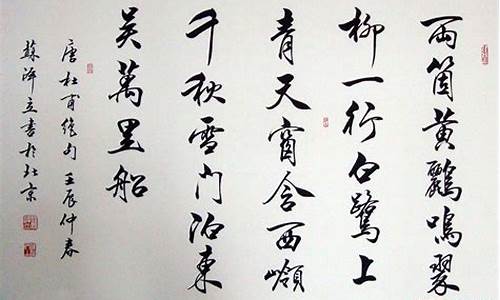 兩箇黃鸝鳴翠
柳一行白鷺上
青天窗含西嶺
千秋雪門泊東
吳萬里船
唐杜甫絕句 壬辰仲春
蘇澤立書於北京